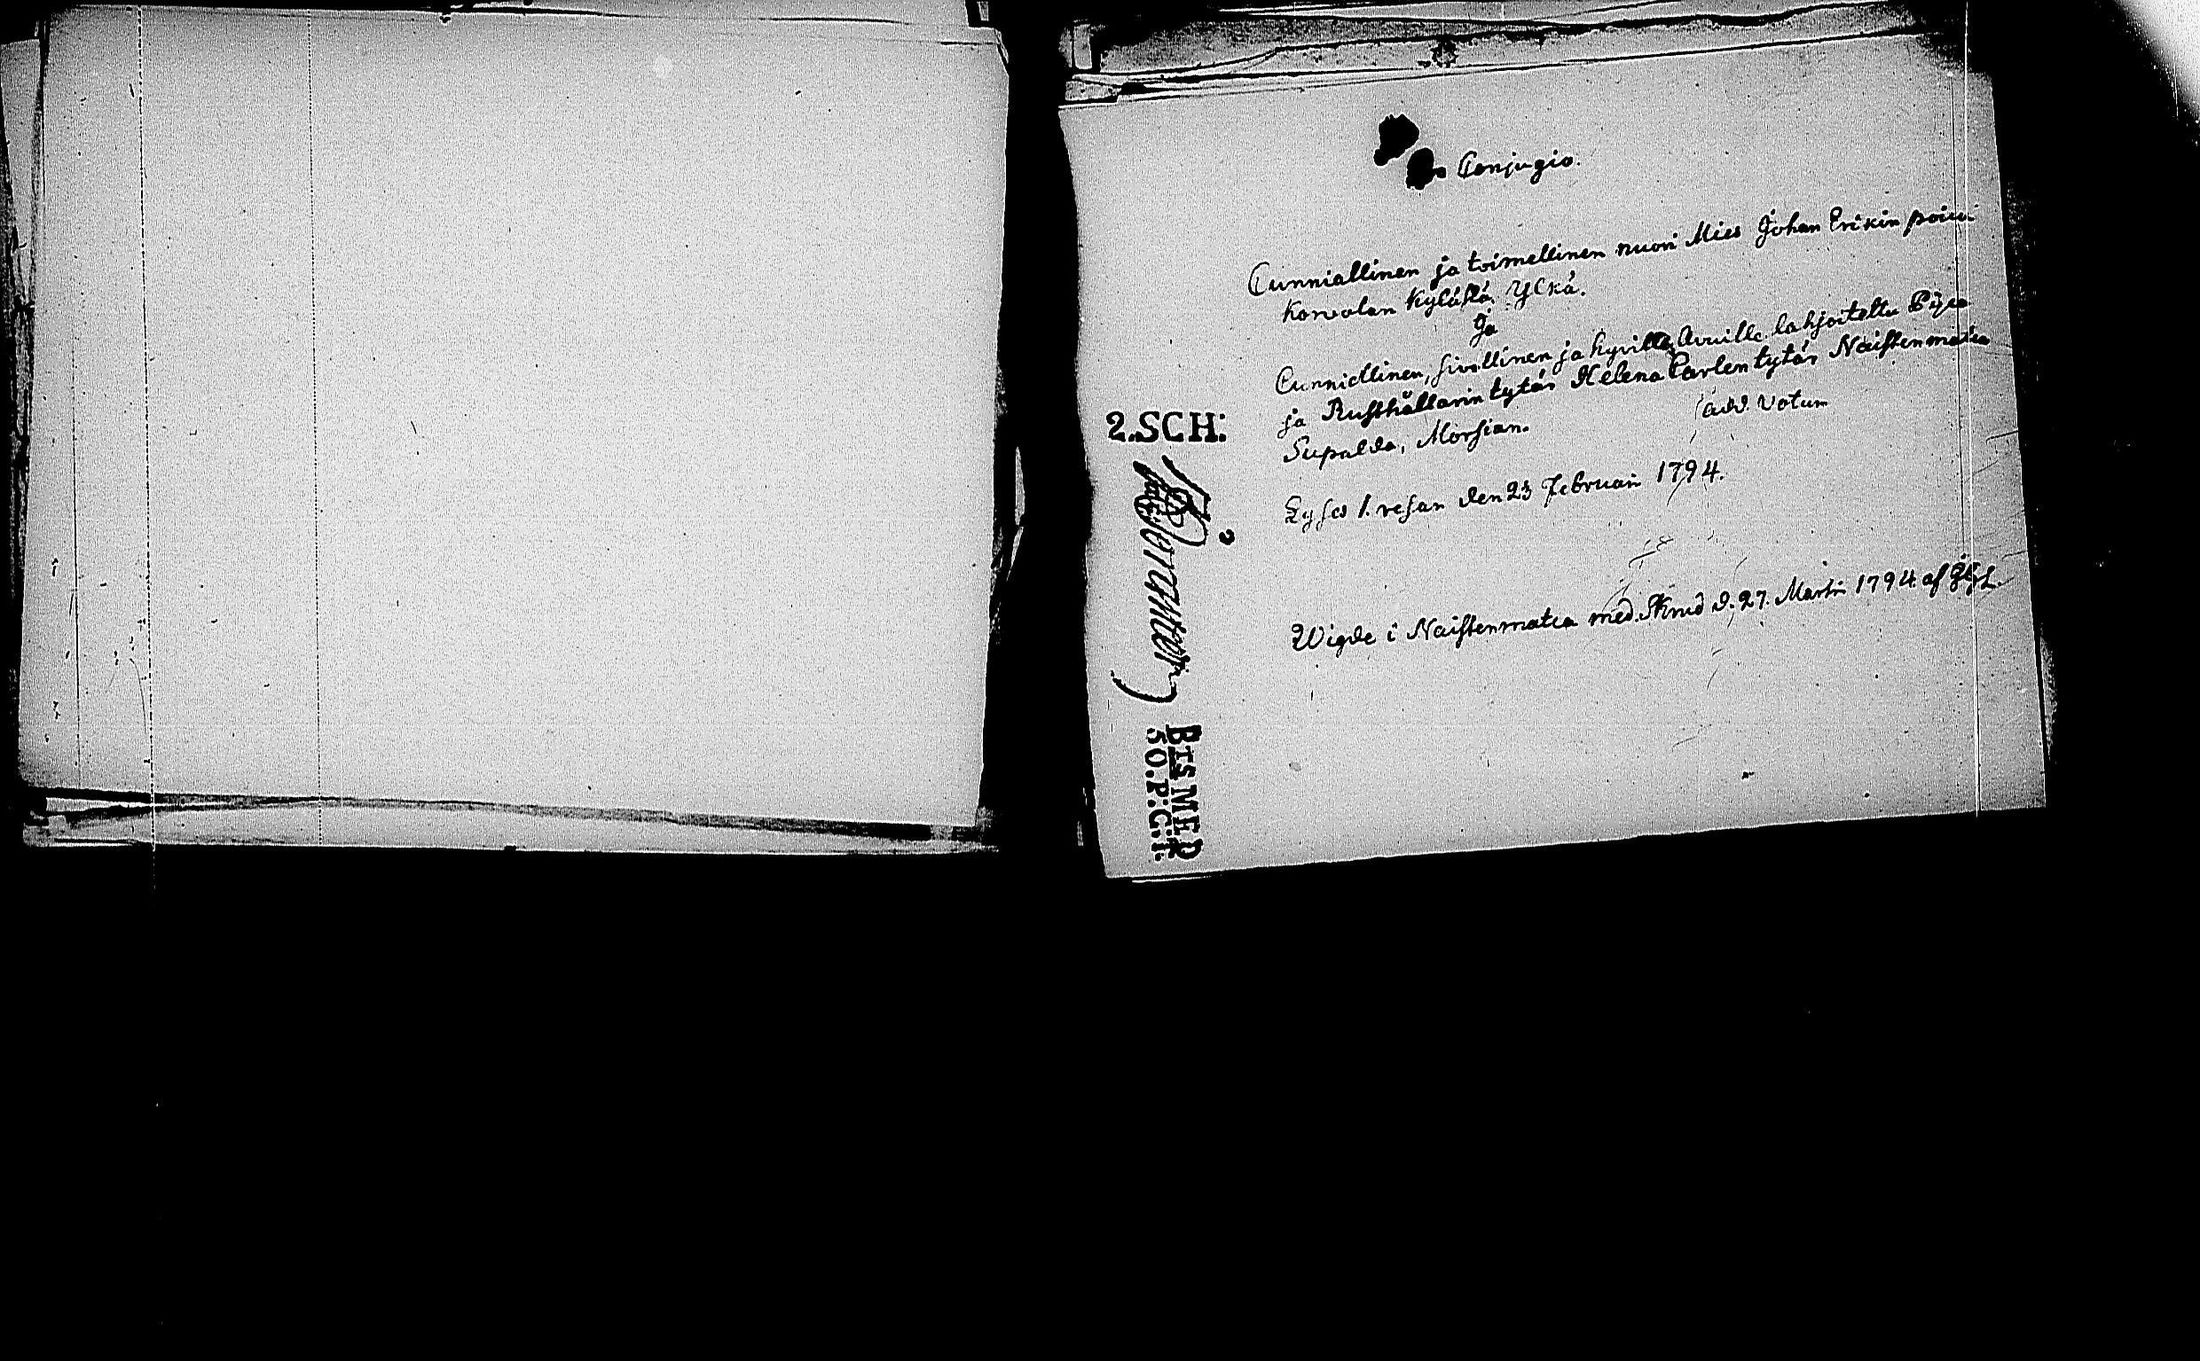 Conjugio.
Cunniallinen ja toimellinen nuori Mies Johan Erikin poica
Korvolan Kylästä Ylkä.
Ja
Cunniallinen, sivellinen ja hyvillä Avuilla lahjoitettu Pijca
ja Rusthållarin tytär Helena Carlen tytär Naistenmatca
(add. Votum
Supalda, Morsian.
Lyses 1. resan den 23 Februarii 1794.
Wigde i Naistenmatca med Skrud d. 27. Martii 1794 af
2.SCH:
BTS MED
50.P:G:I.